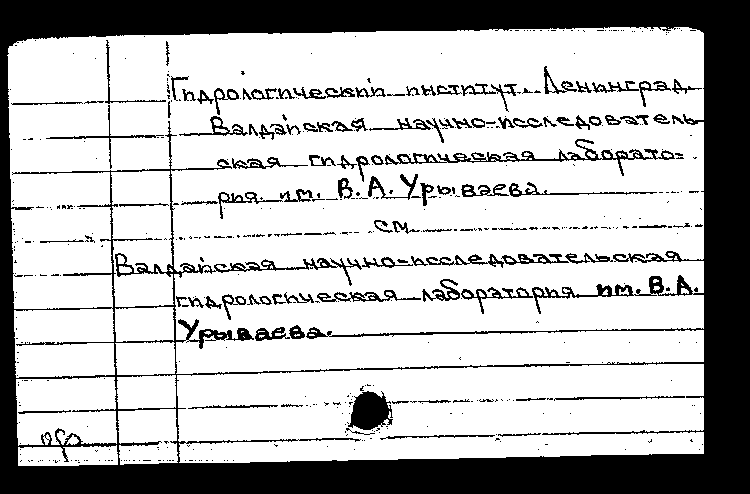 Гидрологический институт. Ленинград.
Валдайская научно-исследователь-
ская гидрологическая лаборато=
рия им. В. А. Урываева.
см
Валдайская научно-исследовательская
гидрологическая лаборатория им. В. А.
Урываева.